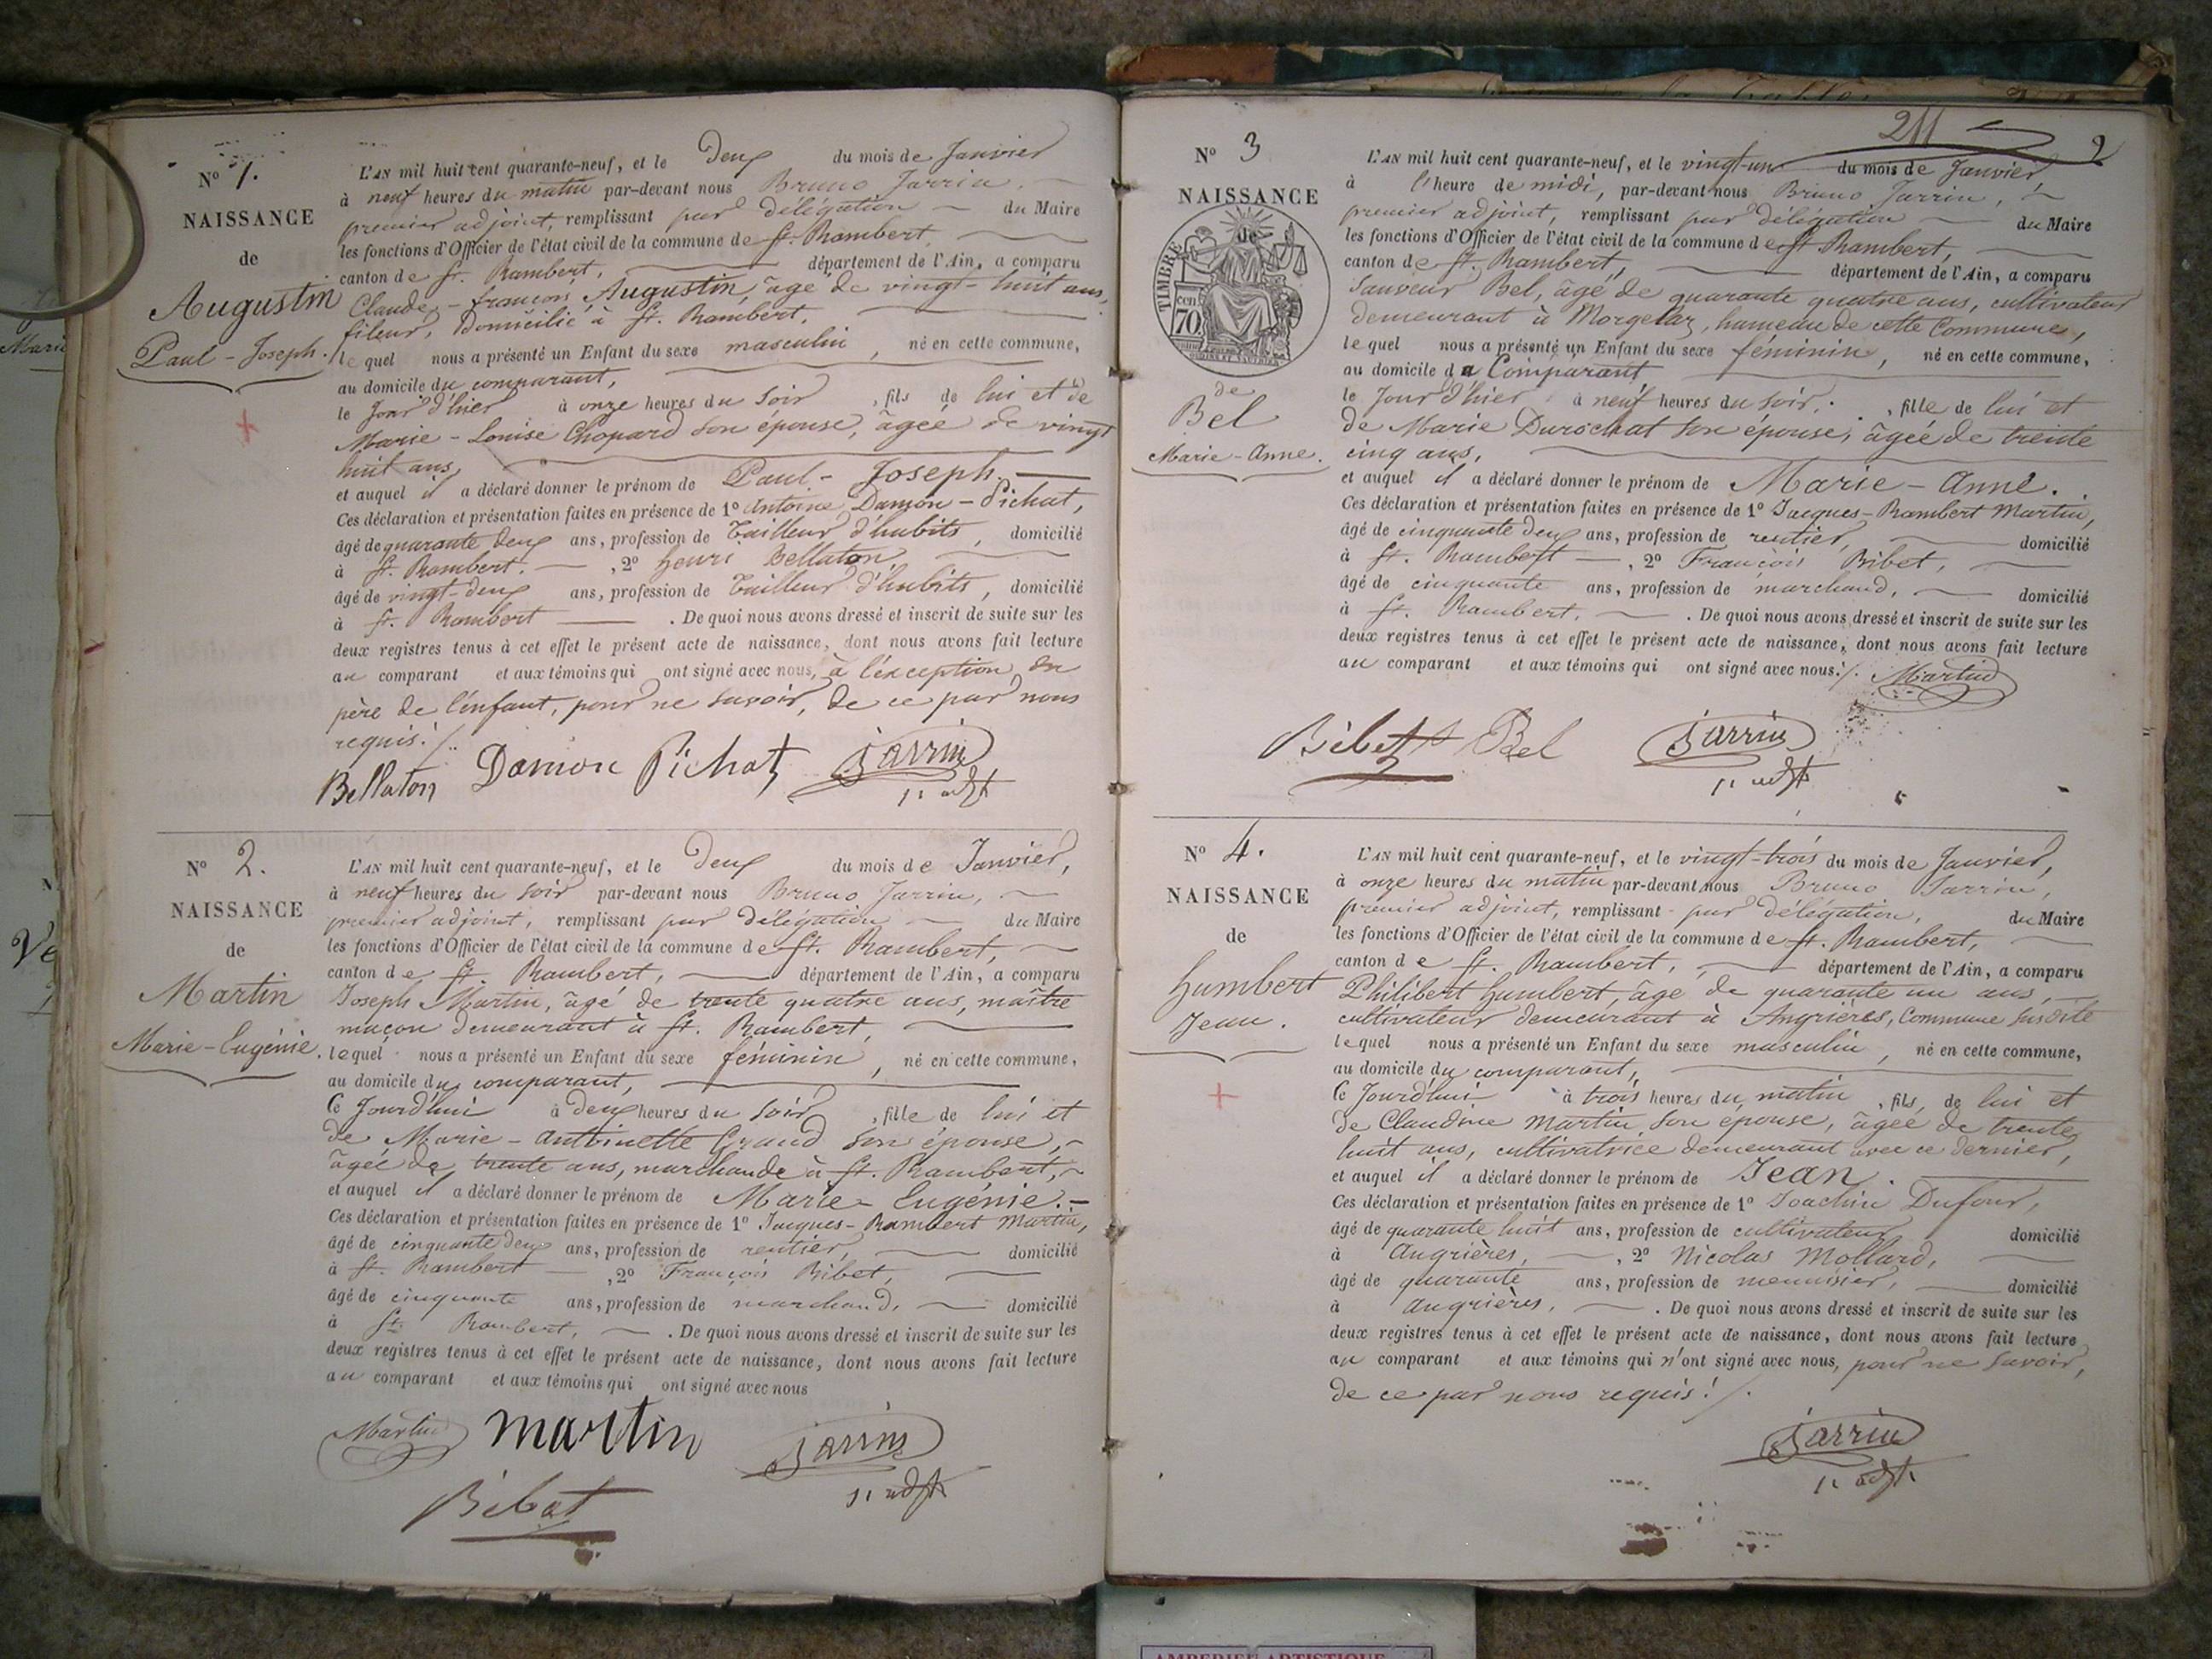 N° 1.
NAISSANCE
de
Augustin
Paul-Joseph.
L'AN mil huit cent quarante-neuf, et le Deux du mois de Janvier
à neuf heures du matin par-devant nous Bruno Jarrin,
premier adjoint, remplissant par délégation du Maire
les fonctions d'Officier de l'état civil de la commune de St. Rambert,
canton de St. Rambert, département de l'Ain, a comparu
Claude-françois Augustin, âgé de vingt-huit ans,
fileur, domicilié à St. Rambert,
lequel nous a présenté un Enfant du sexe masculin, né en cette commune,
au domicile du comparant,
le Jour d'hier à onze heures du soir, fils de lui et de
Marie-Louise Chopard son épouse, âgée de vingt
huit ans,
et auquel il a déclaré donner le prénom de Paul-Joseph.
Ces déclaration et présentation faites en présence de 1° Antoine Damon-Pichat,
âgé de quarante deux ans, profession de Tailleur d'habits, domicilié
à St. Rambert. , 2° henri Bellaton
âgé de vingt-deux ans, profession de Tailleur d'habits, domicilié
à St. Rambert . De quoi nous avons dressé et inscrit de suite sur les
deux registres tenus à cet effet le présent acte de naissance, dont nous avons fait lecture
au comparant et aux témoins qui ont signé avec nous, à l'exception du
père de l'enfant, pour ne savoir, de ce par nous
requis./.
Bellaton Damon Pichat Jarrin
1er adjt
N° 2.
NAISSANCE
de
Martin
Marie-Eugénie.
L'AN mil huit cent quarante-neuf, et le Deux du mois de Janvier,
à neuf heures du soir par-devant nous Bruno Jarrin,
premier adjoint, remplissant par délégation du Maire
les fonctions d'Officier de l'état civil de la commune de St. Rambert,
canton de St. Rambert, département de l'Ain, a comparu
Joseph Martin, âgé de trente quatre ans, maître
maçon demeurant à St. Rambert,
lequel nous a présenté un Enfant du sexe féminin, né en cette commune,
au domicile du comparant,
Ce Jourd'hui à deux heures du soir, fille de lui et
de Marie-Antoinette Grand son épouse,
âgée de trente ans, marchande à St. Rambert,
et auquel il a déclaré donner le prénom de Marie-Eugénie.
Ces déclaration et présentation faites en présence de 1° Jacques-Rambert Martin,
âgé de cinquante deux ans, profession de rentier, domicilié
à St. Rambert , 2° François Bibet,
âgé de cinquante ans, profession de marchand, domicilié
à St. Rambert, . De quoi nous avons dressé et inscrit de suite sur les
deux registres tenus à cet effet le présent acte de naissance, dont nous avons fait lecture
au comparant et aux témoins qui ont signé avec nous
Martin martin Jarrin
1er adjt
Bibet
211
2
N° 3
NAISSANCE
TIMBRE
cen
70
de
Bel
Marie-Anne.
L'AN mil huit cent quarante-neuf, et le vingt-un du mois de Janvier,
à l'heure de midi, par-devant nous Bruno Jarrin,
premier adjoint, remplissant par délégation du Maire
les fonctions d'Officier de l'état civil de la commune de St Rambert,
canton de St. Rambert, département de l'Ain, a comparu
Sauveur Bel, âgé de quarante quatre ans, cultivateur
demeurant à Morgelaz, hameau de cette Commune,
lequel nous a présenté un Enfant du sexe féminin, né en cette commune,
au domicile du Comparant
le Jour d'hier à neuf heures du soir, fille de lui et
de Marie Durochat son épouse, âgée de trente
cinq ans,
et auquel il a déclaré donner le prénom de Marie-Anne.
Ces déclaration et présentation faites en présence de 1° Jacques-Rambert Martin,
âgé de cinquante deux ans, profession de rentier, domicilié
à St. Rambert , 2° François Bibet,
âgé de cinquante ans, profession de marchand, domicilié
à St. Rambert, . De quoi nous avons dressé et inscrit de suite sur les
deux registres tenus à cet effet le présent acte de naissance, dont nous avons fait lecture
au comparant et aux témoins qui ont signé avec nous./. Martin
Bibet Bel Jarrin
1er adjt
N° 4.
NAISSANCE
de
humbert
Jean.
L'AN mil huit cent quarante-neuf, et le vingt-trois du mois de Janvier,
à onze heures du matin par-devant nous Bruno Jarrin,
premier adjoint, remplissant par délégation, du Maire
les fonctions d'Officier de l'état civil de la commune de St. Rambert,
canton de St. Rambert, département de l'Ain, a comparu
Philibert humbert, âgé de quarante un ans,
cultivateur demeurant à Angrières, Commune susdite
lequel nous a présenté un Enfant du sexe masculin, né en cette commune,
au domicile du comparant,
Ce Jourd'hui à trois heures du matin, fils de lui et
de Claudine Martin son épouse, âgée de trente
huit ans, cultivatrice demeurant avec ce dernier,
et auquel il a déclaré donner le prénom de Jean.
Ces déclaration et présentation faites en présence de 1° Joachim Dufour,
âgé de quarante huit ans, profession de cultivateur domicilié
à Angrières, , 2° Nicolas Mollard,
âgé de quarante ans, profession de menuisier, domicilié
à Angrières, . De quoi nous avons dressé et inscrit de suite sur les
deux registres tenus à cet effet le présent acte de naissance, dont nous avons fait lecture
au comparant et aux témoins qui n'ont signé avec nous, pour ne savoir,
de ce par nous requis./.
Jarrin
1er adjt.
AMBERIEU ARTISTIQUE